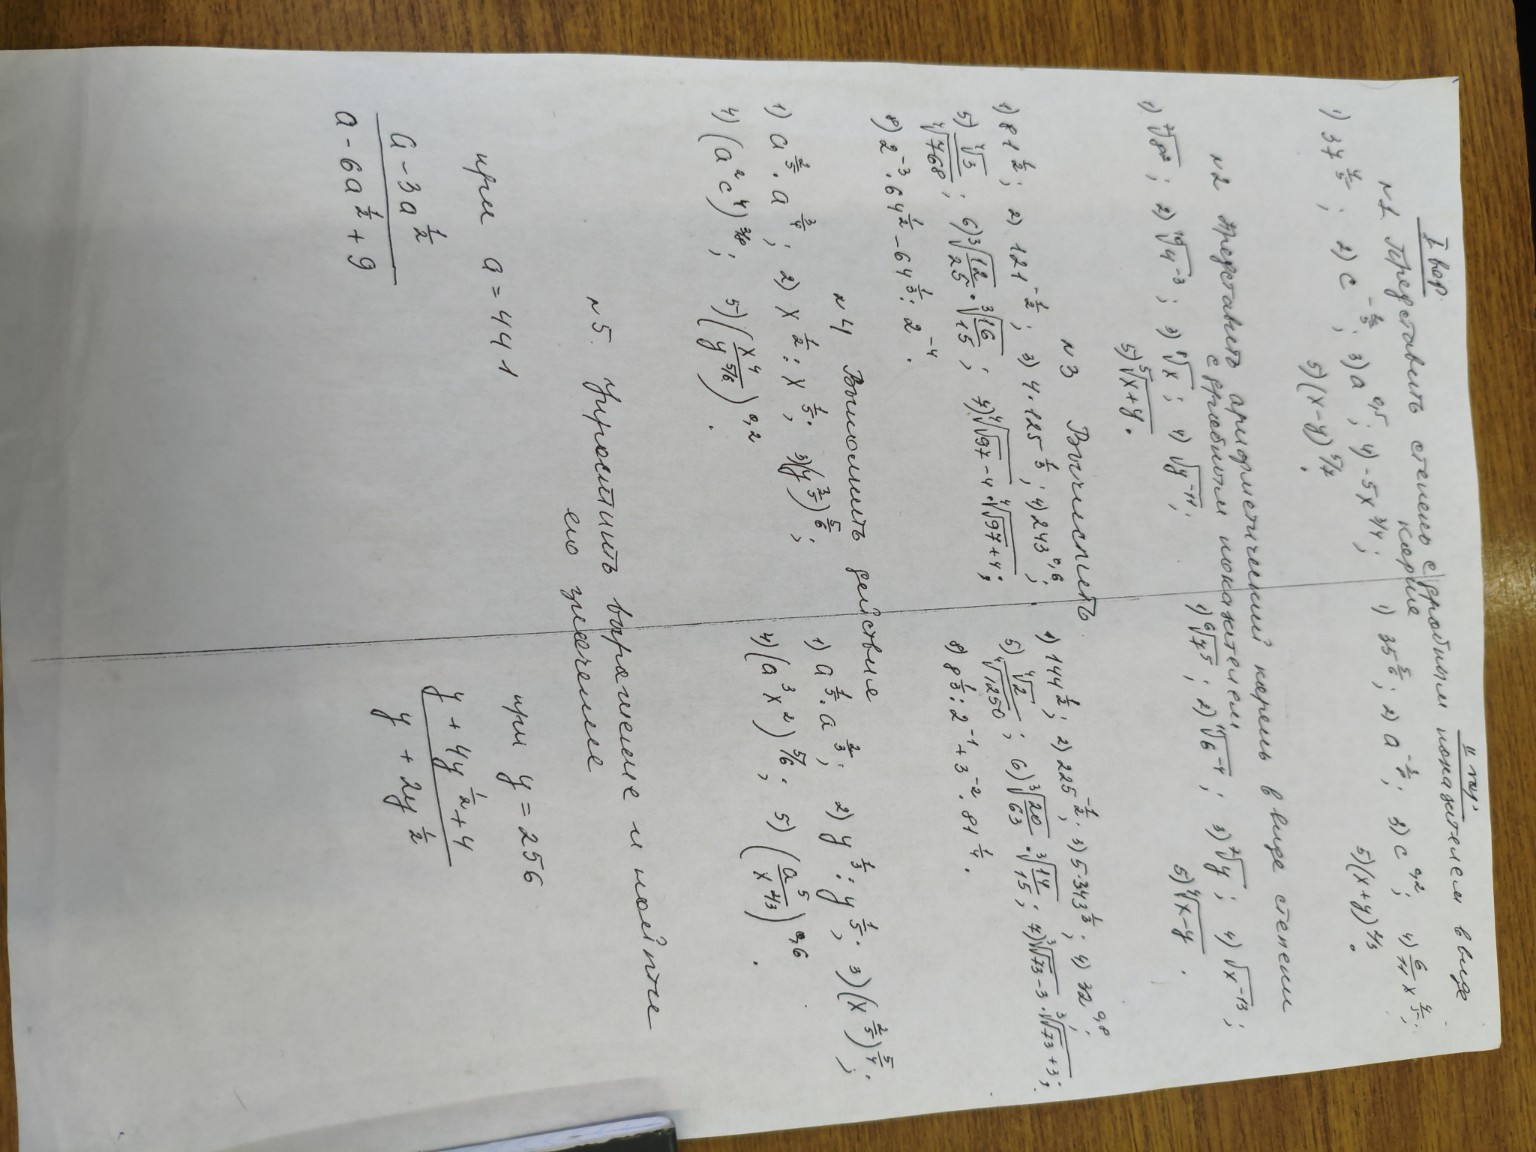 I вар.
II вар.
№1 Представить степень с дробным показателем в виде
корня
1) 37^{4/5}; 3) a^{0,5}; 4) -5x^{3/4};
5) (x-y)^{5/7}.
1) 35^{5/6}; 3) c^{0,2}; 4) x^{4/5};
5) (x+y)^{2/3}.
№2 Представить арифметический корень в виде степени
с дробным показателем
1) 2) 3) 4) √y^{-11};
5) ⁵√x+y.
1) ⁶√7^5; 2) 3) ⁷√y; 4) √x^{-13};
5) ⁴√x-y.
№3 Вычислить
1) 81^{1/2}; 2) 121^{-1/2}; 3) 4·125^{1/3}; 4) 243^{0,6};
5) ⁴√3/⁴√768; 6) ³√12/25 · ³√16/15; 7) ⁴√√97-4 · ⁴√√97+4;
8) 2^{-3}·64^{1/2} - 64^{1/3} : 2^{-4}.
1) 144^{1/2}; 2) 225^{-1/2}; 3) 5·343^{1/3}; 4) 32^{0,8};
5) ⁴√2/⁴√1250; 6) ³√20/63 · ³√14/15; 7) ³√√73-3 · ³√√73+3;
8) 8^{1/3} : 2^{-1} + 3^{-2}·81^{1/4}.
№4 Выполнить действие
1) a^{2/5}·a^{3/4}; 2) x^{1/2} : x^{1/5}; 3) (y^{2/5})^{5/6};
4) (a^2c^4)^{3/8}; 5) (x^4/y^{5/6})^{0,2}.
1) a^{1/5}·a^{2/3}; 2) y^{1/3} : y^{1/5}; 3) (x^{2/5})^{5/4};
4) (a^3x^2)^{5/6}; 5) (a^5/x^{2/3})^{0,6}.
№5. Упростить выражение и найти
его значение
при a = 441
a - 3a^{1/2}
a - 6a^{1/2} + 9
при y = 256
y + 4y^{1/2} + 4
y + 2y^{1/2}